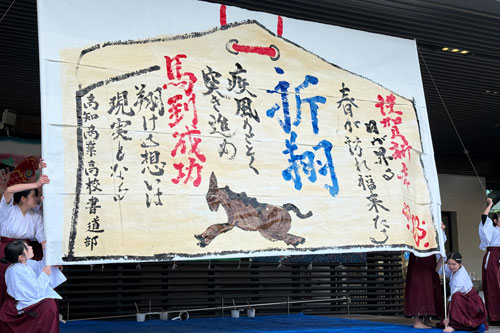 謹賀新年
陽が昇る
春が訪れ福来たる
祈翔
疾風のごとく
突き進め
馬到成功
翔ける想いは
現実となる
高知商業高校書道部